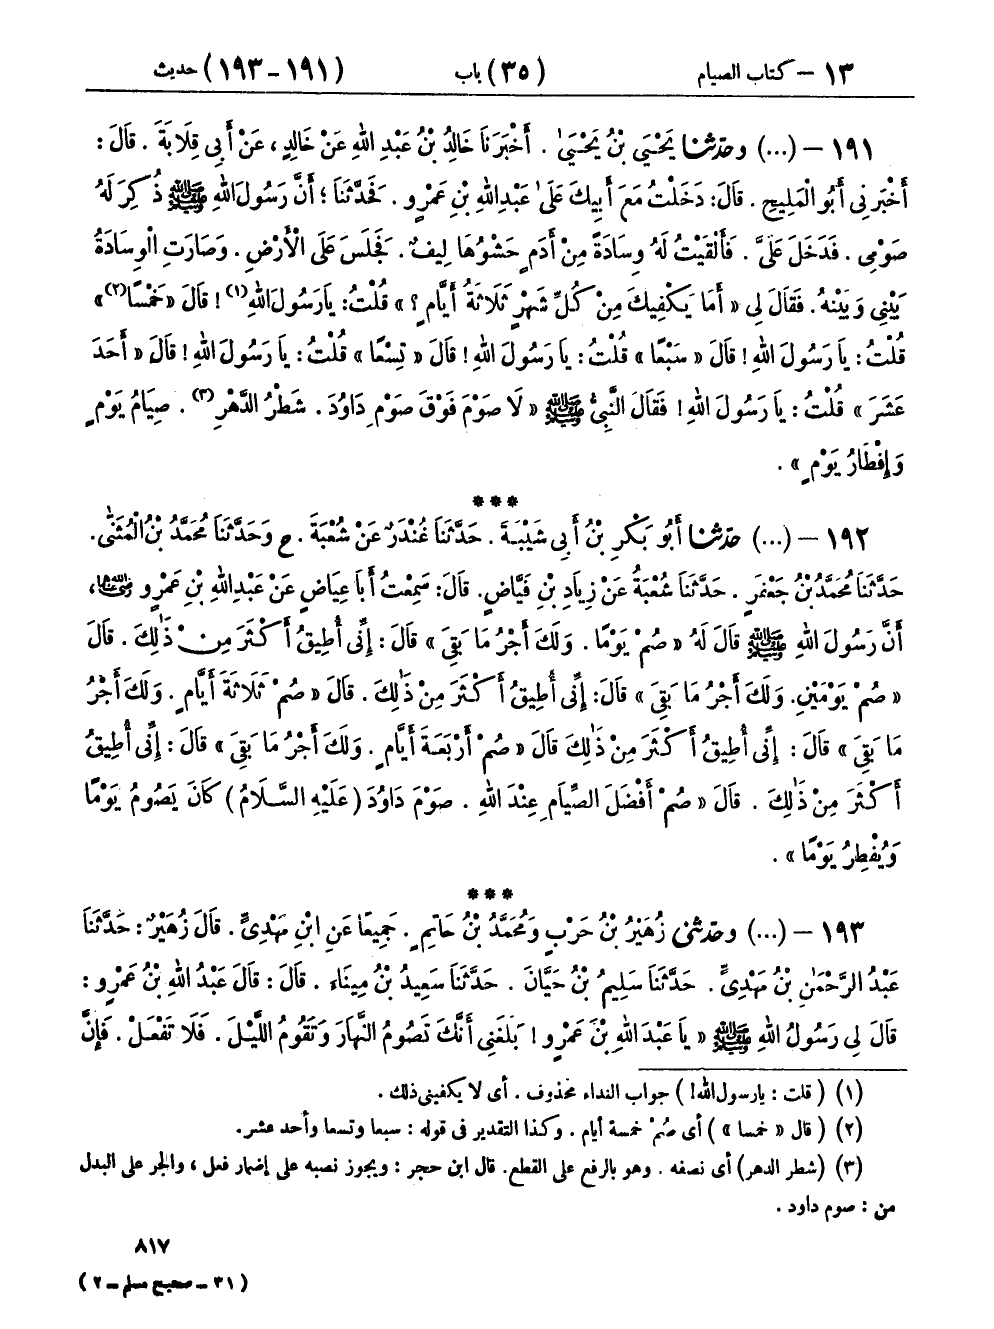 ١٣ – كتاب الصيام (٣٥) باب (١٩١-١٩٣) حديث
١٩١ – (...) وحدثنا يَحْيَىٰ بْنُ يَحْيَىٰ . أَخْبَرَنَا خَالِدُ بْنُ عَبْدِ اللهِ عَنْ خَالِدٍ ، عَنْ أَبِي قِلَابَةَ . قَالَ :
أَخْبَرَنِي أَبُو الْمَلِيحِ . قَالَ : دَخَلْتُ مَعَ أَبِيكَ عَلَىٰ عَبْدِ اللهِ بْنِ عَمْرٍو . فَحَدَّثَنَا ؛ أَنَّ رَسُولَ اللهِ ﷺ ذُكِرَ لَهُ
صَوْمِي . فَدَخَلَ عَلَيَّ . فَأَلْقَيْتُ لَهُ وِسَادَةً مِنْ أَدَمٍ حَشْوُهَا لِيفٌ . فَجَلَسَ عَلَى الْأَرْضِ . وَصَارَتِ الْوِسَادَةُ
بَيْنِي وَبَيْنَهُ . فَقَالَ لِي « أَمَا يَكْفِيكَ مِنْ كُلِّ شَهْرٍ ثَلَاثَةُ أَيَّامٍ ؟ » قُلْتُ : يَا رَسُولَ اللهِ(١) ! قَالَ « خَمْسًا(٢) »
قُلْتُ : يَا رَسُولَ اللهِ ! قَالَ « سَبْعًا » قُلْتُ : يَا رَسُولَ اللهِ ! قَالَ « تِسْعًا » قُلْتُ : يَا رَسُولَ اللهِ ! قَالَ « أَحَدَ
عَشَرَ » قُلْتُ : يَا رَسُولَ اللهِ ! فَقَالَ النَّبِيُّ ﷺ « لَا صَوْمَ فَوْقَ صَوْمِ دَاوُدَ . شَطْرُ الدَّهْرِ(٣) . صِيَامُ يَوْمٍ
وَإِفْطَارُ يَوْمٍ » .
***
١٩٢ – (...) حدثنا أَبُو بَكْرِ بْنُ أَبِي شَيْبَةَ . حَدَّثَنَا غُنْدَرٌ عَنْ شُعْبَةَ . ح وَحَدَّثَنَا مُحَمَّدُ بْنُ الْمُثَنَّىٰ .
حَدَّثَنَا مُحَمَّدُ بْنُ جَعْفَرٍ . حَدَّثَنَا شُعْبَةُ عَنْ زِيَادِ بْنِ فَيَّاضٍ . قَالَ : سَمِعْتُ أَبَا عِيَاضٍ عَنْ عَبْدِ اللهِ بْنِ عَمْرٍو رضي الله عنهما ،
أَنَّ رَسُولَ اللهِ ﷺ قَالَ لَهُ « صُمْ يَوْمًا . وَلَكَ أَجْرُ مَا بَقِيَ » قَالَ : إِنِّي أُطِيقُ أَكْثَرَ مِنْ ذَٰلِكَ . قَالَ
« صُمْ يَوْمَيْنِ . وَلَكَ أَجْرُ مَا بَقِيَ » قَالَ : إِنِّي أُطِيقُ أَكْثَرَ مِنْ ذَٰلِكَ . قَالَ « صُمْ ثَلَاثَةَ أَيَّامٍ . وَلَكَ أَجْرُ
مَا بَقِيَ » قَالَ : إِنِّي أُطِيقُ أَكْثَرَ مِنْ ذَٰلِكَ قَالَ « صُمْ أَرْبَعَةَ أَيَّامٍ . وَلَكَ أَجْرُ مَا بَقِيَ » قَالَ : إِنِّي أُطِيقُ
أَكْثَرَ مِنْ ذَٰلِكَ . قَالَ « صُمْ أَفْضَلَ الصِّيَامِ عِنْدَ اللهِ . صَوْمَ دَاوُدَ ( عَلَيْهِ السَّلَامُ ) كَانَ يَصُومُ يَوْمًا
وَيُفْطِرُ يَوْمًا » .
***
١٩٣ – (...) وحدثني زُهَيْرُ بْنُ حَرْبٍ وَمُحَمَّدُ بْنُ حَاتِمٍ . جَمِيعًا عَنِ ابْنِ مَهْدِيٍّ . قَالَ زُهَيْرٌ : حَدَّثَنَا
عَبْدُ الرَّحْمَٰنِ بْنُ مَهْدِيٍّ . حَدَّثَنَا سَلِيمُ بْنُ حَيَّانَ . حَدَّثَنَا سَعِيدُ بْنُ مِينَاءَ . قَالَ : قَالَ عَبْدُ اللهِ بْنُ عَمْرٍو :
قَالَ لِي رَسُولُ اللهِ ﷺ « يَا عَبْدَ اللهِ بْنَ عَمْرٍو ! بَلَغَنِي أَنَّكَ تَصُومُ النَّهَارَ وَتَقُومُ اللَّيْلَ . فَلَا تَفْعَلْ . فَإِنَّ
(١) ( قلت : يا رسول الله! ) جواب النداء محذوف . أي لا يكفيني ذلك .
(٢) ( قال « خمسا » ) أي صُمْ خمسة أيام . وكذا التقدير في قوله : سبعا وتسعا وأحد عشر.
(٣) (شطر الدهر) أي نصفه . وهو بالرفع على القطع. قال ابن حجر : ويجوز نصبه على إضمار فعل ، والجر على البدل
من : صوم داود .
٨١٧
( ٣١ – صحيح مسلم – ٢ )